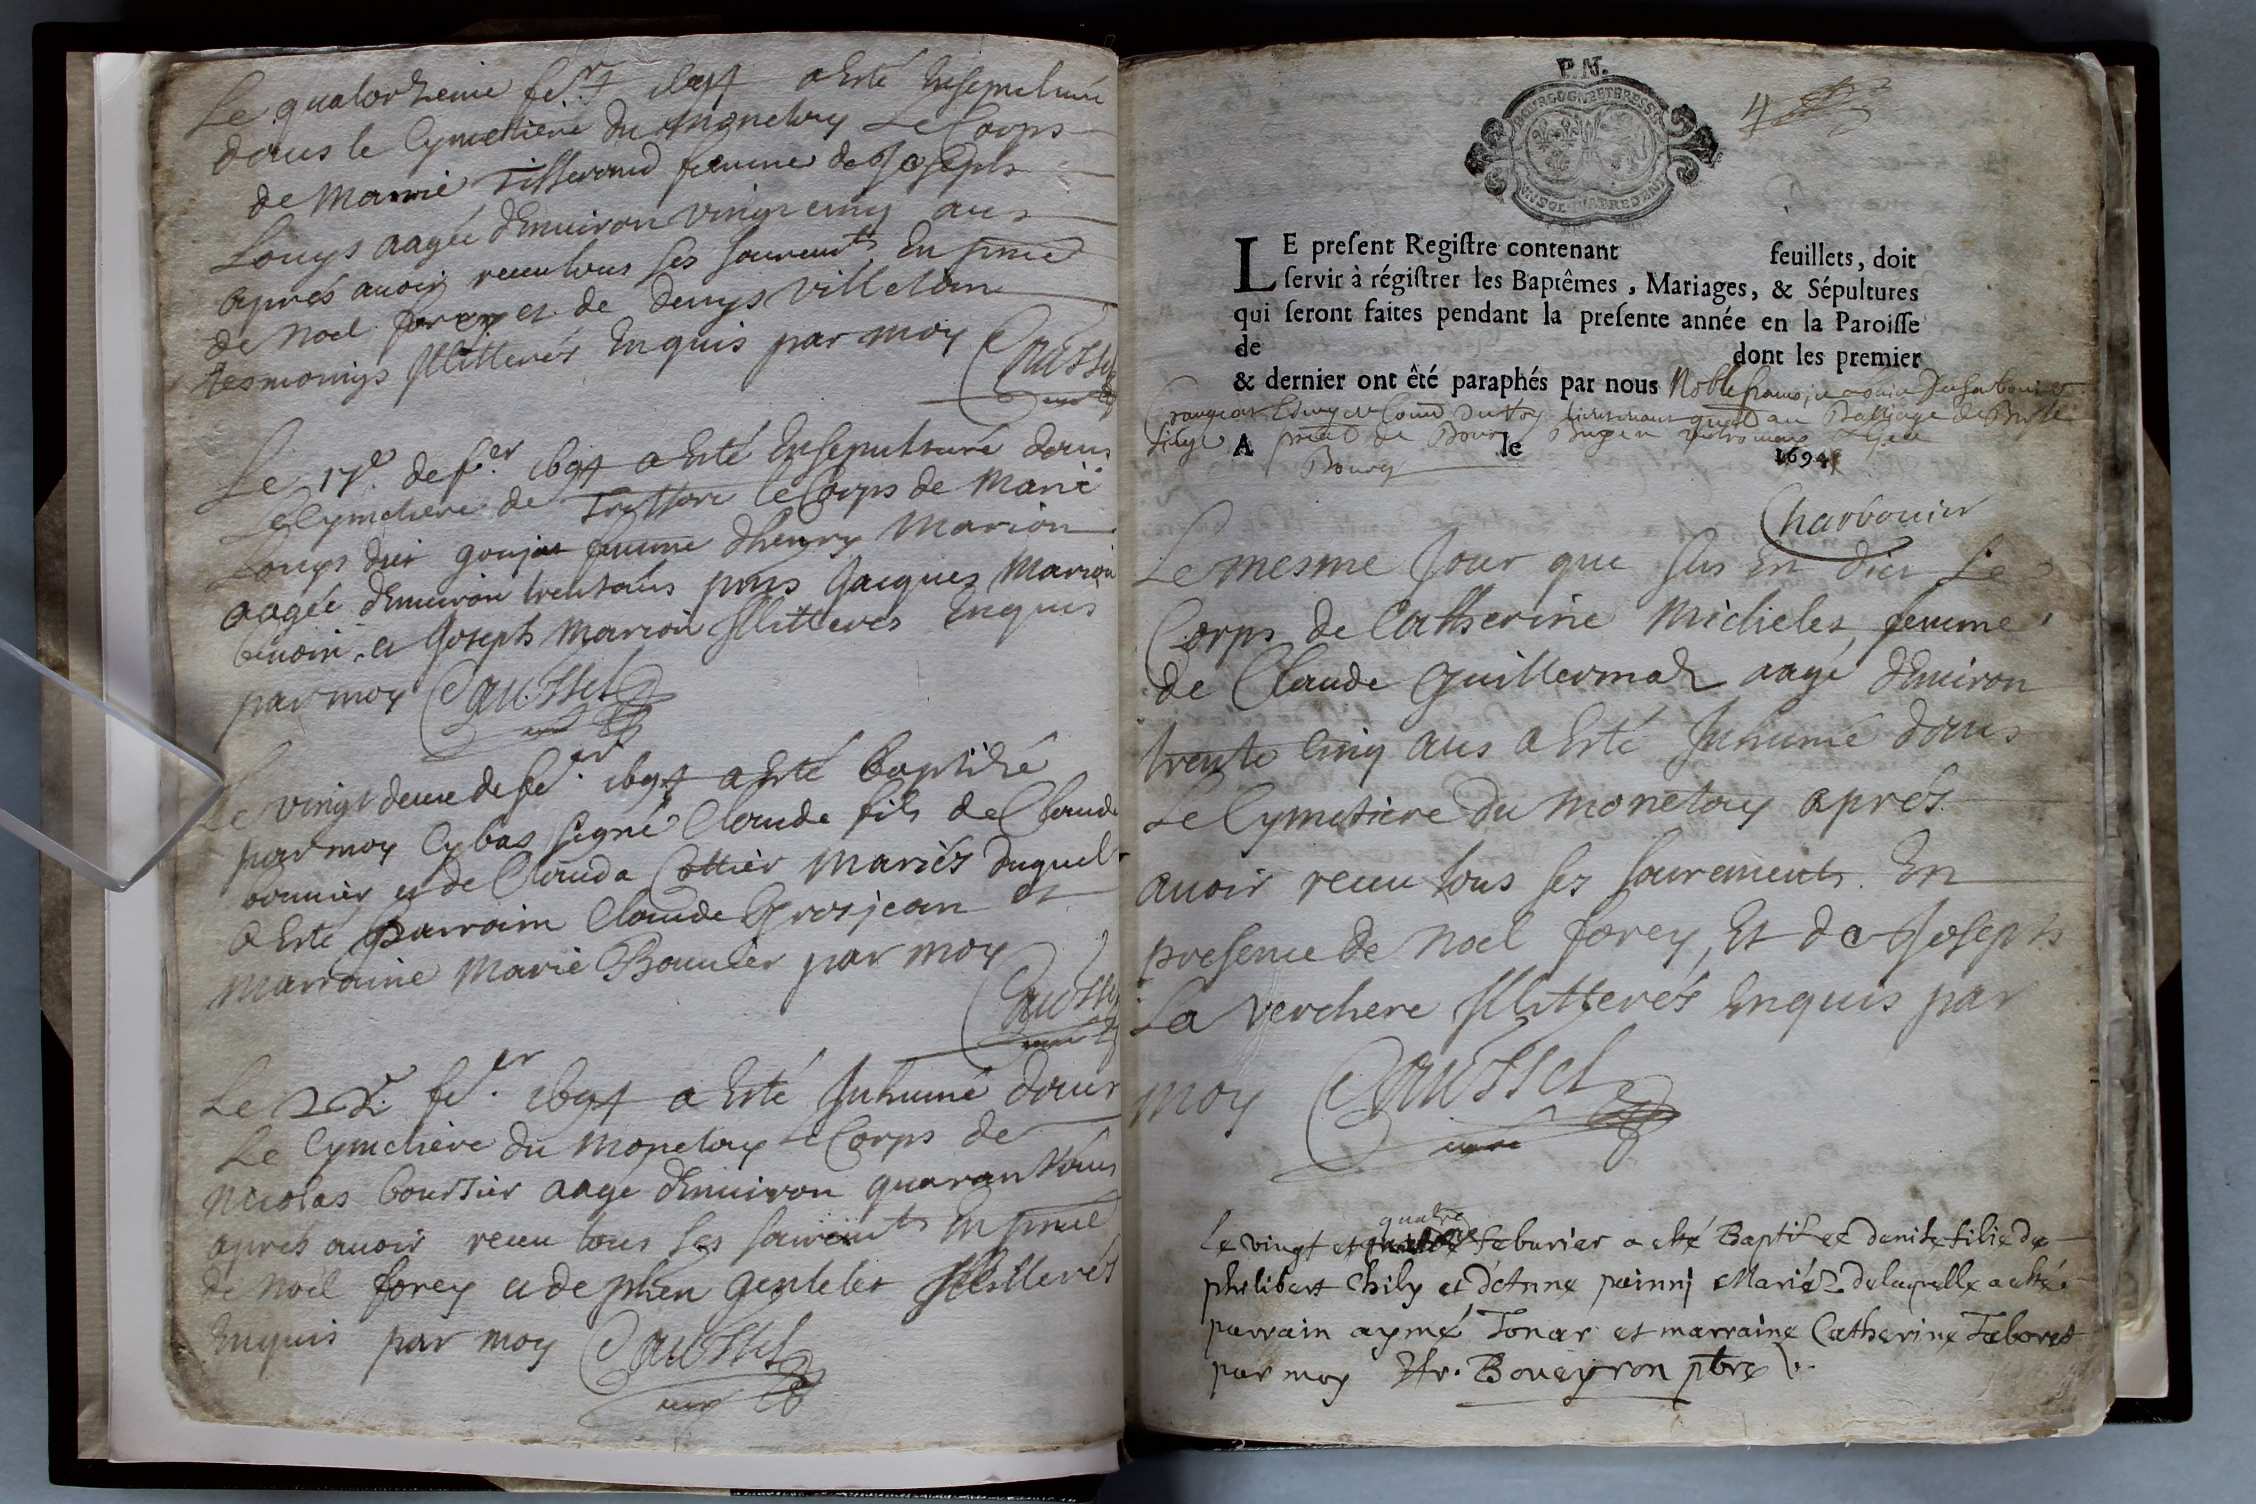 Le quatorzeme fe.er 1694 a Esté Ensepulturé
dans le Cymetiere du monetay Le Corps
de Marie Tisserand femme de Joseph
Louys aagée d'Environ vingt cinq ans
apres avoir receu tous ses sacremts En pnce
de Noel forey et de Denys Villeton
tesmoings Illitterés Enquis par moy
Caussel
Le 17e. de fe.er 1694 a Esté Ensepulturé dans
le Cymetiere de le Corps de Marie
Louys dit goujat femme d'henry Marion
aagée d'Environ trentans pnts Jacques Marion
benoin et Joseph Marion Illitteres Enquis
par moy Caussel
Le vingt deue de fe.er 1694 a Esté baptizé
par moy Cybas signé Claude fils de Claude
bonnier et de Clauda Cottier Mariés duquel
a Esté parrain Claude Grosjean et
marraine Marie Bonnier par moy
Caussel
Le fe.er 1694 a Esté Inhumé dans
Le Cymetiere du monetay le Corps de
Nicolas boursier aagé d'Environ quarantans
apres avoir receu tous ses sacremts En pnce
de Noel forey et de phen gentelet Illitterés
Enquis par moy Caussel
P. N.
4
LE present Registre contenant feuillets, doit
servir à régistrer les Baptêmes, Mariages, & Sépultures
qui seront faites pendant la presente année en la Paroisse
de dont les premier
& dernier ont êté paraphés par nous Noble
Coner Du Roy lieutenant gnal au Balliage de
siege A pnal de Bourg le 1694
Bourg
Charbonier
Le mesme Jour que sus En dict Le
Corps de Catherine Michelet femme
de Claude Guillermaz aagé d'Environ
trente cinq ans a Esté Inhumé dans
Le Cymetiere du monetay apres
avoir receu tous ses sacrements En
presence de Noel forey, Et de Joseph
La verchere Illitterés Enquis par
moy Caussel
quatre
Le vingt et feburier a esté Baptisée denise filie de
philibert Chily et d'Anne painnj Mariéz de laquelle a esté
parrain aymé Tonar et marraine Catherine Taboret
par moy Boueyron ptre